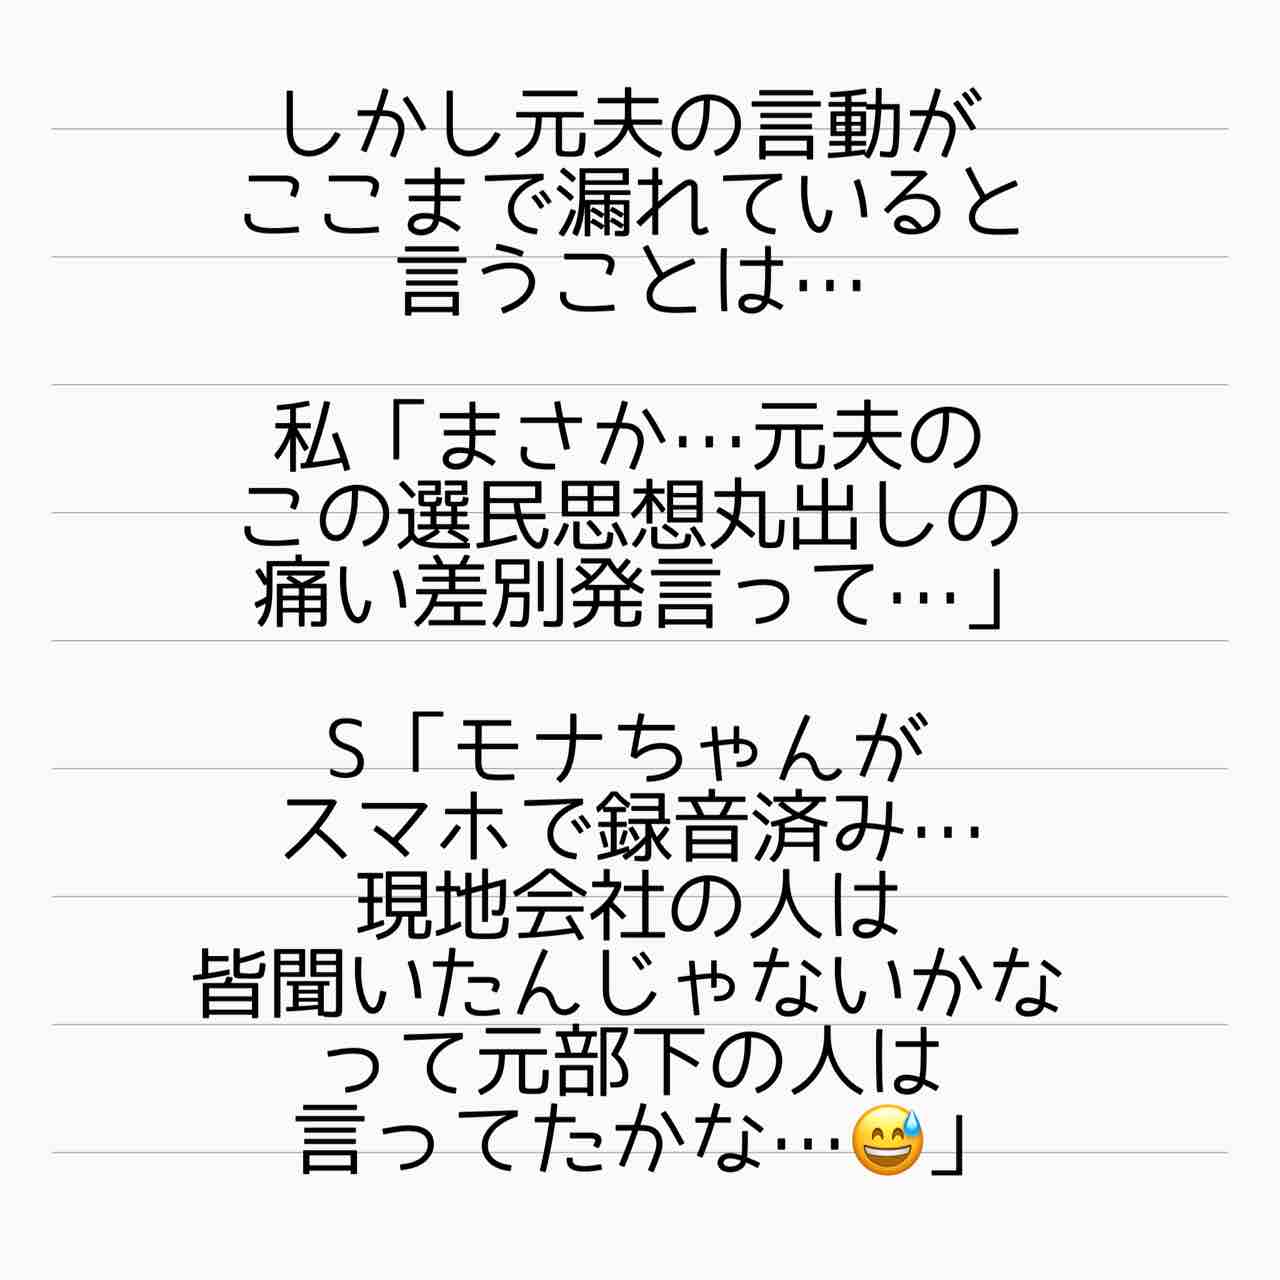 しかし元夫の言動が
ここまで漏れていると
言うことは…
私「まさか…元夫の
この選民思想丸出しの
痛い差別発言って…」
S「モナちゃんが
スマホで録音済み…
現地会社の人は
皆聞いたんじゃないかな
って元部下の人は
言ってたかな…😅」